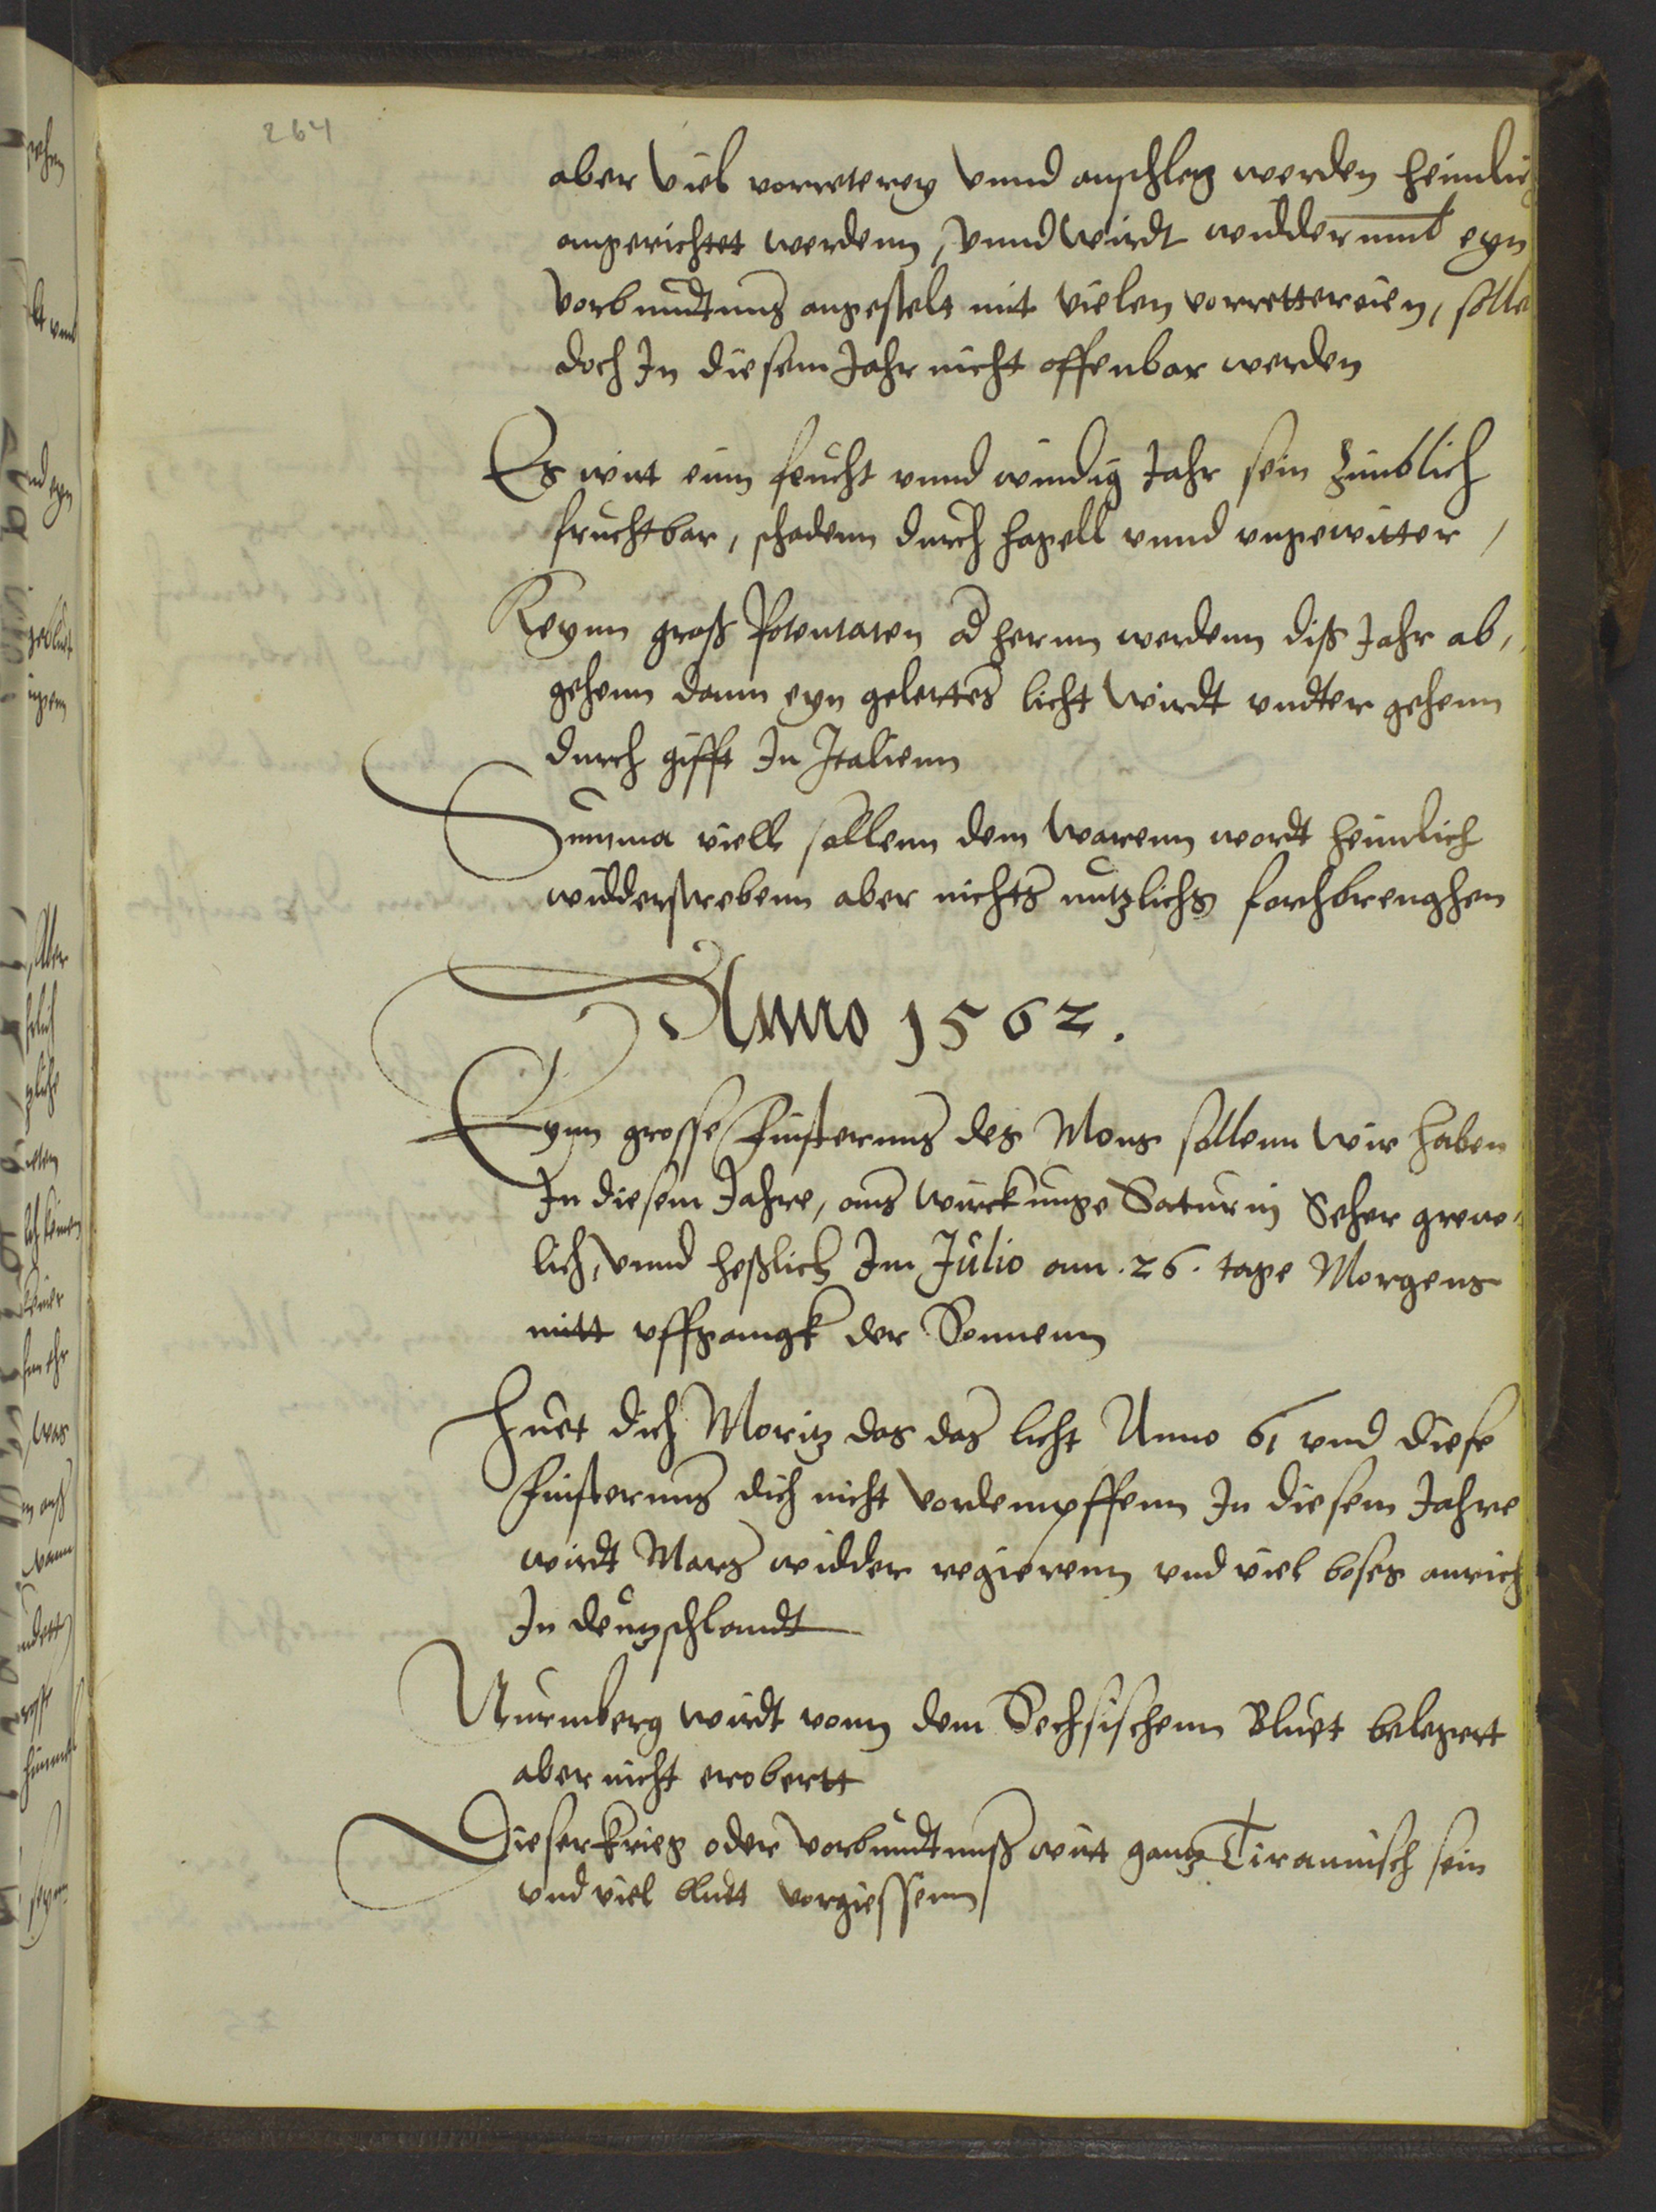 264
aber viel vorreterey vnnd anschleg werden heimlic
angerichtet werdenn, vnnd wirdt widderumb eyn
vorbundtnus angestelt mit vielen vorrettereien, solle
doch In diesem Jahr nicht offenbar werden
Es wirt einn feucht vnnd windig Jahr sein zimblich
fruchtbar, schadenn durch hagell vnnd vngewitter,
Keynn groß Potentaten od herrnn werdenn diß Jahr ab,
gehenn dann eyn gelertes licht wirdt vndter gehenn
durch gifft In Italienn
Summa viell sollenn dem warenn wordt heimlich
widderstrebenn aber nichts nutzlichs forchbrenghen
Anno 1562.
Eynn grosse Finsternus des Mons sollenn wir haben
In diesem Jahre, aus wirckunge Saturnj Seher grew,
lich, vnnd heßlich Im Julio am .26. tage Morgens
mitt vffgangk der Sonnenn
Huet dich Moritz das das licht Anno 61 vnd diese
Finsternus dich nicht vordempffenn In diesem Jahre
wirdt Mars widder regierenn vnd viel boses anrich
In deutzschlandt
Nurmberg wirdt vonn dem Sechsischenn Bluet belegert
aber nicht erobertt
Dieser krieg oder vorbundtnuß wirt gantz Tirannisch sein
vnd viel blutt vorgiessenn